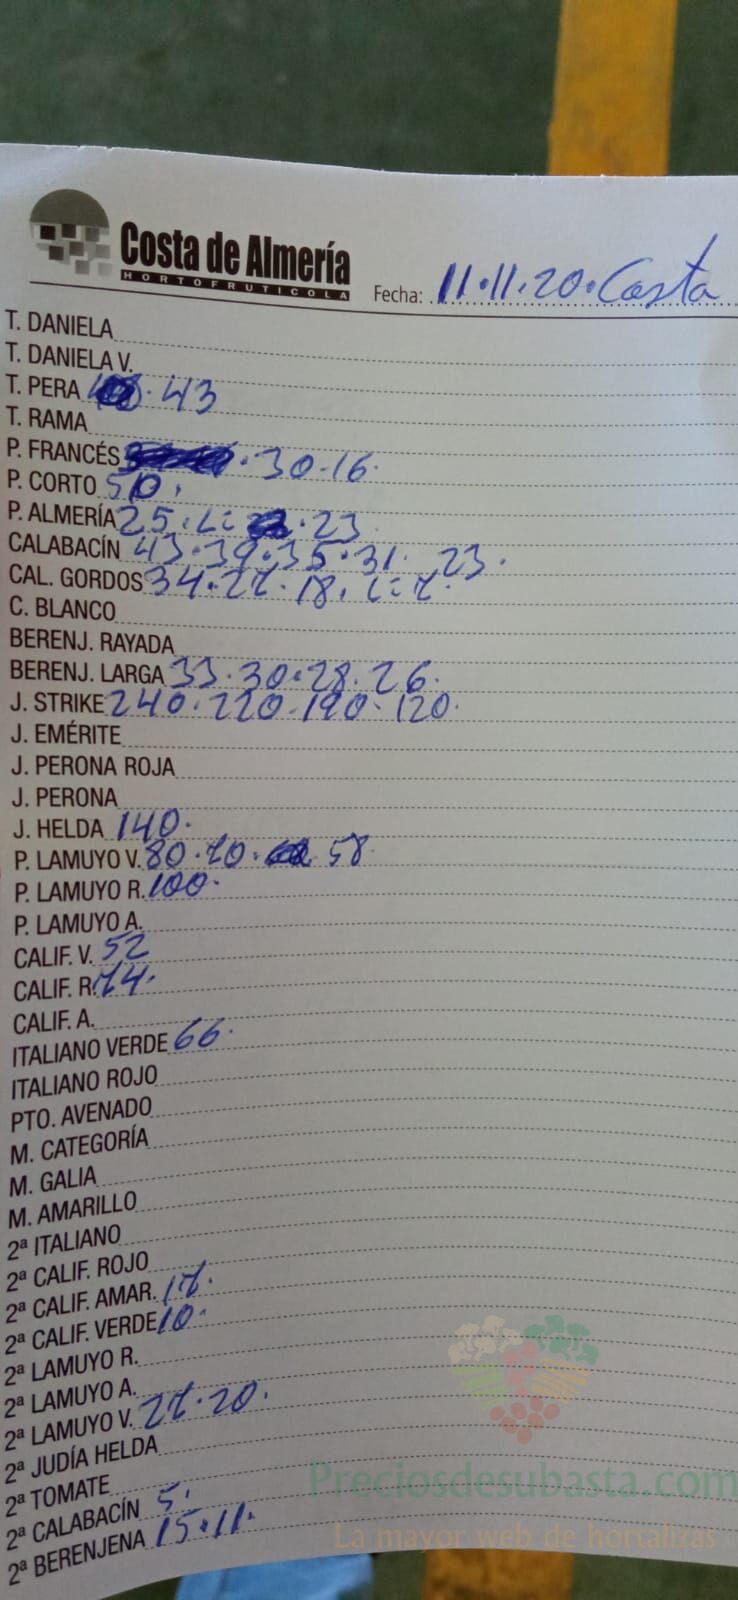 Costa de Almería
HORTOFRUTICOLA
Fecha: 11.11.20. Costa
T. DANIELA
T. DANIELA V.
T. PERA . 43
T. RAMA
P. FRANCÉS . 30.16.
P. CORTO 50.
P. ALMERÍA 25. L: . 23
CALABACÍN 43.39.35.31. 23.
CAL. GORDOS 34.27.18. L: 7.
C. BLANCO
BERENJ. RAYADA
BERENJ. LARGA 33.30.28.26.
J. STRIKE 240.220.190.120.
J. EMÉRITE
J. PERONA ROJA
J. PERONA
J. HELDA 140.
P. LAMUYO V. 80.70. 58
P. LAMUYO R. 100.
P. LAMUYO A.
CALIF. V. 52
CALIF. R. 74.
CALIF. A.
ITALIANO VERDE 66.
ITALIANO ROJO
PTO. AVENADO
M. CATEGORÍA
M. GALIA
M. AMARILLO
2ª ITALIANO
2ª CALIF. ROJO
2ª CALIF. AMAR. 17.
2ª CALIF. VERDE 10.
2ª LAMUYO R.
2ª LAMUYO A.
2ª LAMUYO V. 27.20.
2ª JUDÍA HELDA
2ª TOMATE
2ª CALABACÍN 5.
2ª BERENJENA 15.11.
Preciosdesubasta.com
La mayor web de hortalizas